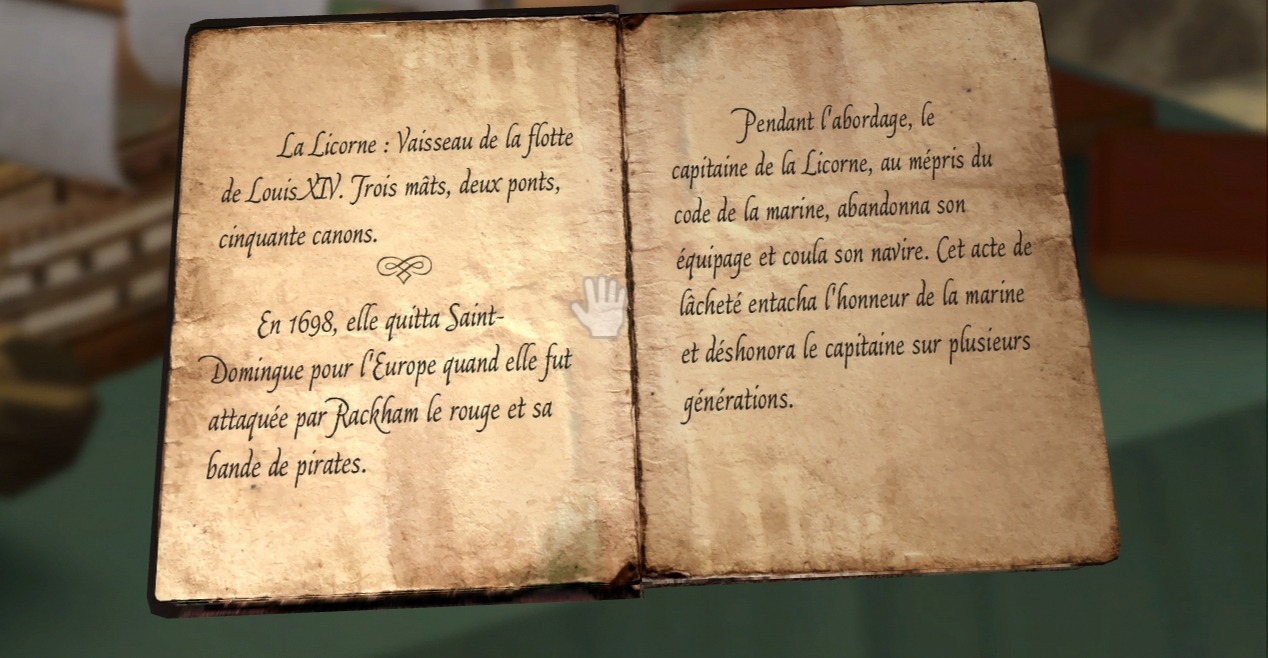 La Licorne : Vaisseau de la flotte
de Louis XIV. Trois mâts, deux ponts,
cinquante canons.
En 1698, elle quitta Saint-
Domingue pour l'Europe quand elle fut
attaquée par Rackham le rouge et sa
bande de pirates.
Pendant l'abordage, le
capitaine de la Licorne, au mépris du
code de la marine, abandonna son
équipage et coula son navire. Cet acte de
lâcheté entacha l'honneur de la marine
et déshonora le capitaine sur plusieurs
générations.